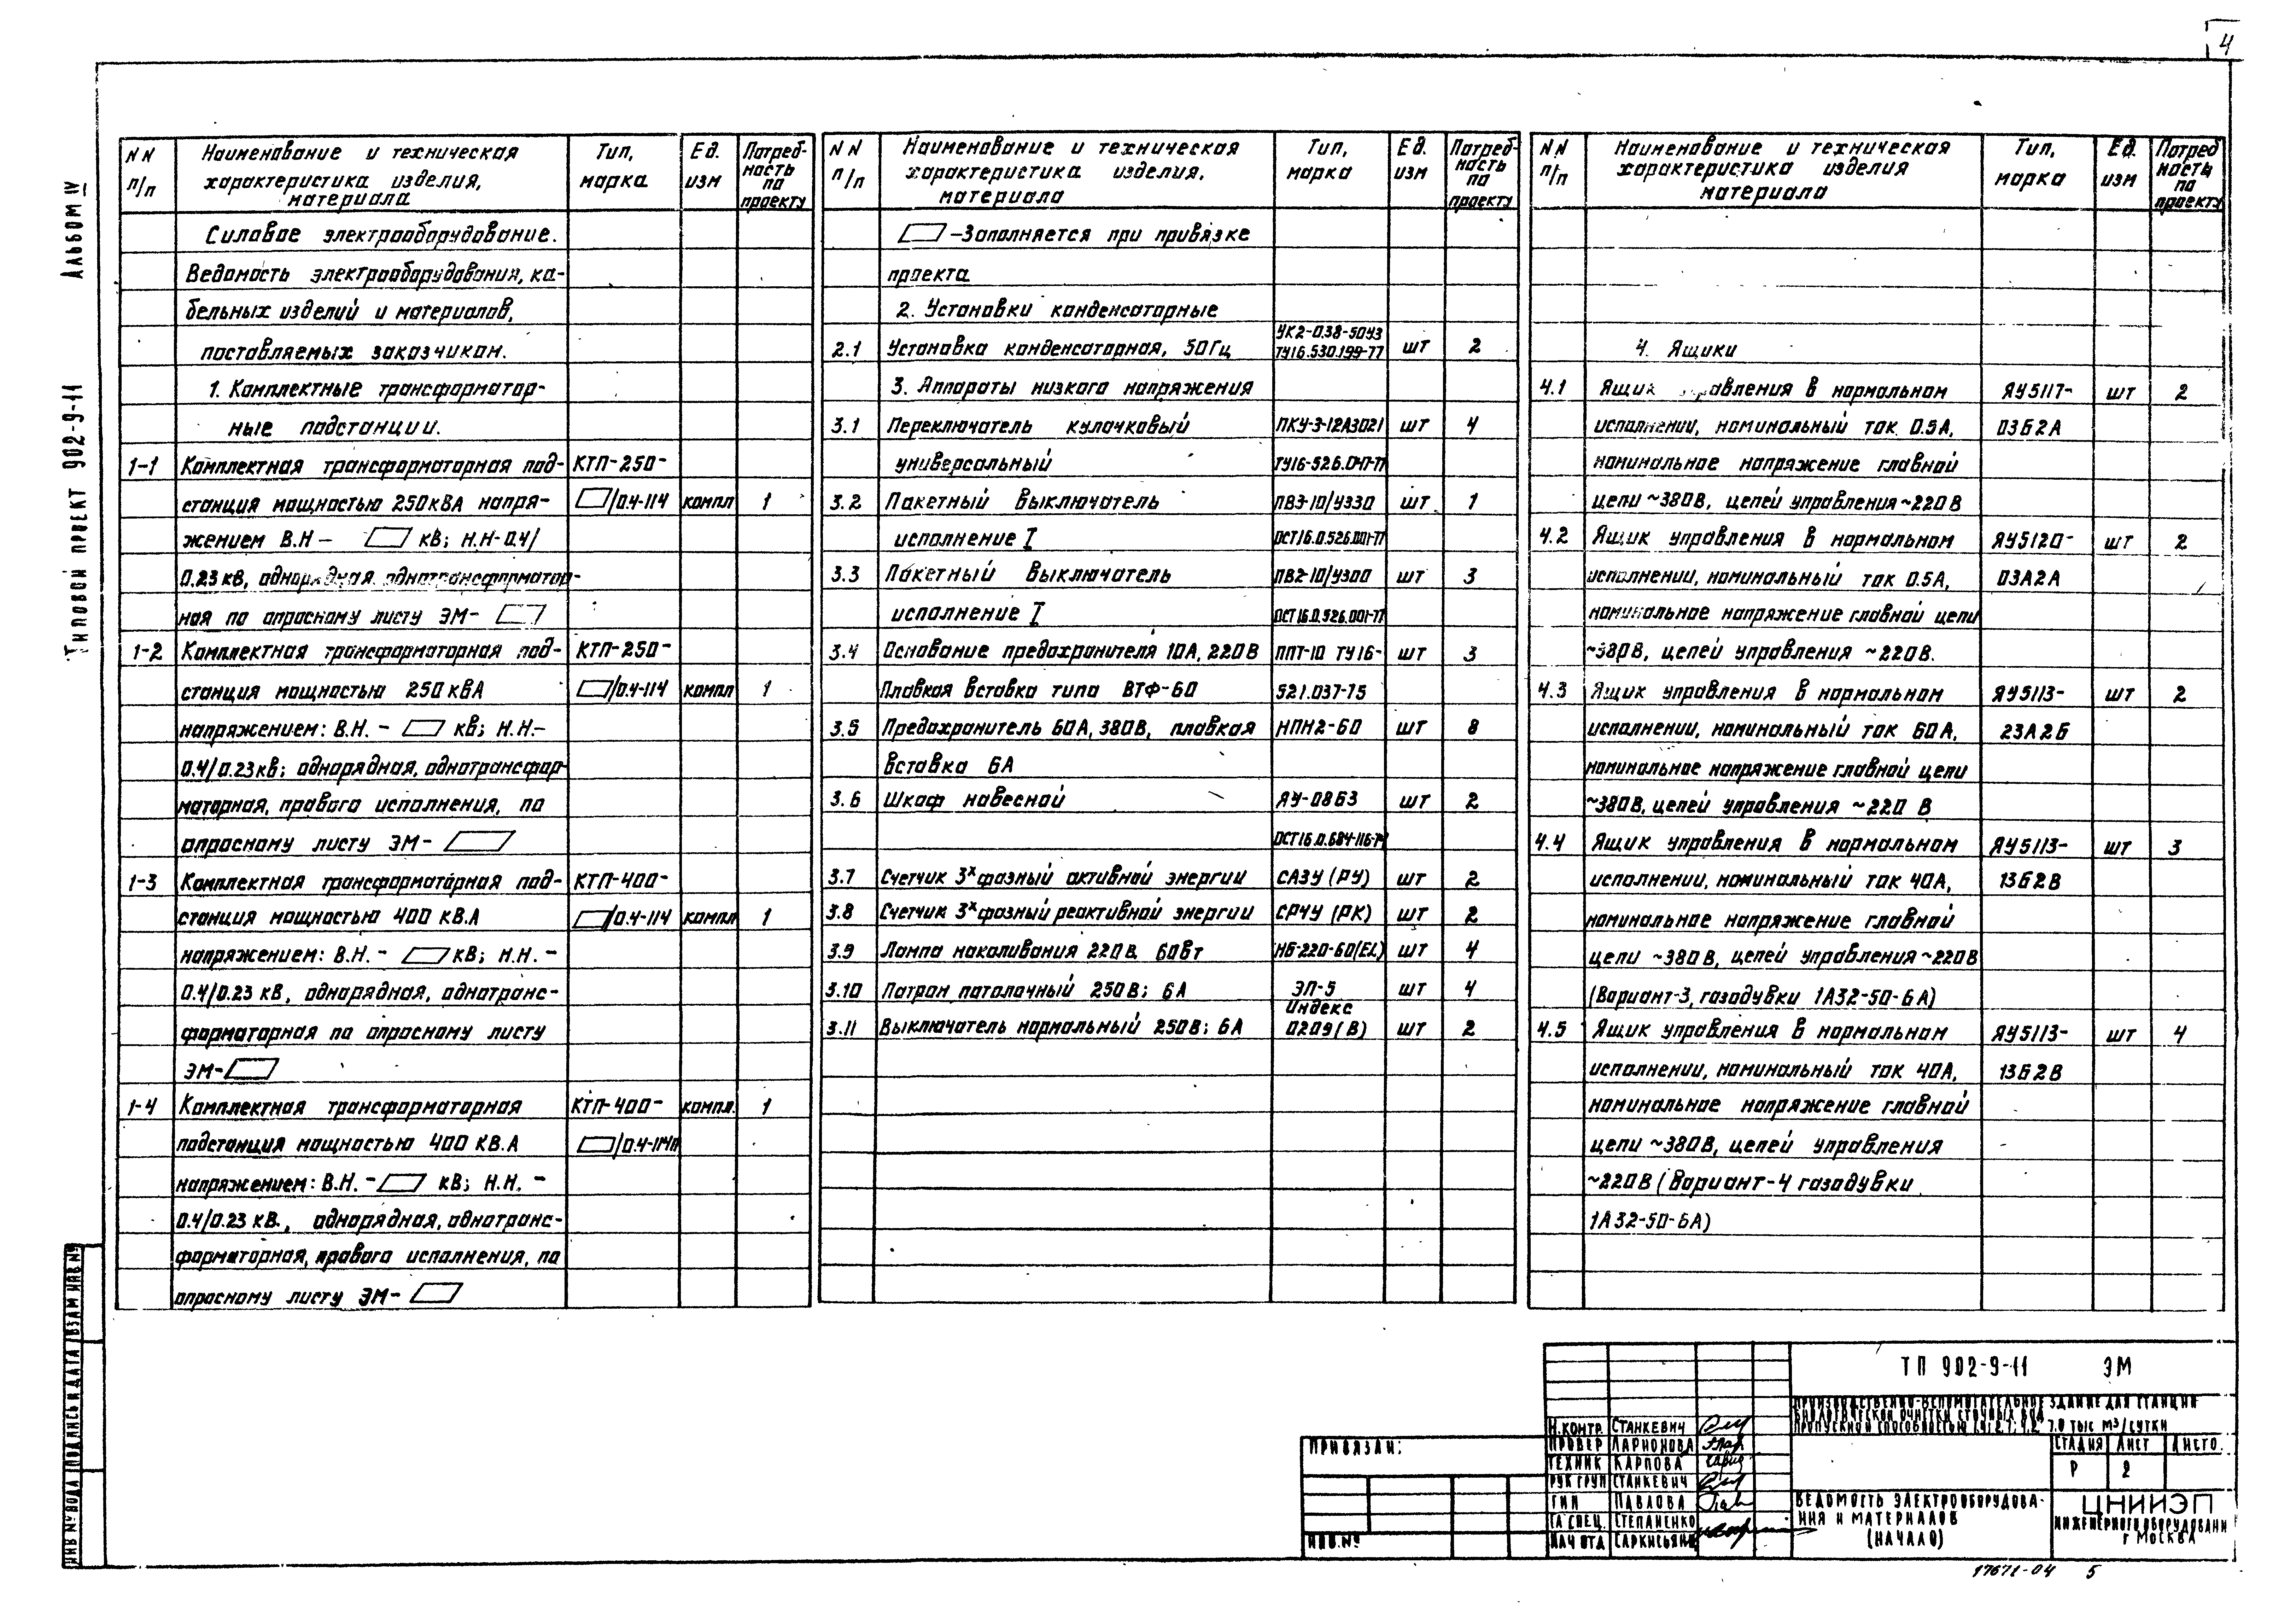 4
Альбом IV
Типовой проект 902-9-11
NN п/п
Наименование и техническая характеристика изделия, материала
Тип, марка
Ед. изм
Потребность по проекту
Силовое электрооборудование.
Ведомость электрооборудования, ка-
бельных изделий и материалов,
поставляемых заказчиком.
1. Комплектные трансформатор-
ные подстанции.
1-1 Комплектная трансформаторная под- КТП-250-
станция мощностью 250кВА напря- ▱/0.4-114 компл 1
жением В.Н - ▱ кВ; Н.Н-0.4/
0.23 кВ, однорядная, однотрансформатор-
ная по опросному листу ЭМ- ▱
1-2 Комплектная трансформаторная под- КТП-250-
станция мощностью 250 кВА ▱/0.4-114 компл 1
напряжением: В.Н. - ▱ кВ; Н.Н.-
0.4/0.23кв; однорядная, однотрансфор-
маторная, правого исполнения, по
опросному листу ЭМ- ▱
1-3 Комплектная трансформаторная под- КТП-400-
станция мощностью 400 кВ.А ▱/0.4-114 компл 1
напряжением: В.Н. - ▱ кВ; Н.Н. -
0.4/0.23 кВ, однорядная, однотранс-
форматорная по опросному листу
ЭМ-▱
1-4 Комплектная трансформаторная КТП-400- компл. 1
подстанция мощностью 400 кВ.А ▱/0.4-114п
напряжением: В.Н. - ▱ кВ; Н.Н. -
0.4/0.23 кВ., однорядная, однотранс-
форматорная, правого исполнения, по
опросному листу ЭМ- ▱
NN п/п
Наименование и техническая характеристика изделия, материала
Тип, марка
Ед. изм
Потребность по проекту
▱ -Заполняется при привязке
проекта
2. Установки конденсаторные
УК2-0.38-50У3
2.1 Установка конденсаторная, 50Гц ТУ16.530.199-77 шт 2
3. Аппараты низкого напряжения
3.1 Переключатель кулачковый ПКУ-3-12А3021 шт 4
универсальный ТУ16-526.047-77
3.2 Пакетный выключатель ПВ3-10/У330 шт 1
исполнение I ОСТ16.0.526.001-77
3.3 Пакетный выключатель ПВ2-10/У300 шт 3
исполнение I ОСТ16.0.526.001-77
3.4 Основание предохранителя 10А, 220В ППТ-10 ТУ16- шт 3
Плавкая вставка типа ВТФ-60 521.037-75
3.5 Предохранитель 60А, 380В, плавкая НПН2-60 шт 8
вставка 6А
3.6 Шкаф навесной ЯУ-0863 шт 2
ОСТ16.0.684-116-74
3.7 Счетчик 3ˣ фазный активной энергии СА3У (РУ) шт 2
3.8 Счетчик 3ˣ фазный реактивной энергии СР4У (РК) шт 2
3.9 Лампа накаливания 220В, 60вт НБ-220-60(EL) шт 4
3.10 Патрон потолочный 250В; 6А ЭП-5 шт 4
Индекс
3.11 Выключатель нормальный 250В; 6А 0209(В) шт 2
NN п/п
Наименование и техническая характеристика изделия материала
Тип, марка
Ед. изм
Потребность по проекту
4. Ящики
4.1 Ящик управления в нормальном ЯУ5117- шт 2
исполнении, номинальный ток 0.5А, 03Б2А
номинальное напряжение главной
цепи ~380В, цепей управления ~220В
4.2 Ящик управления в нормальном ЯУ5120- шт 2
исполнении, номинальный ток 0.5А, 03А2А
номинальное напряжение главной цепи
~380В, цепей управления ~220В.
4.3 Ящик управления в нормальном ЯУ5113- шт 2
исполнении, номинальный ток 60А, 23А2Б
номинальное напряжение главной цепи
~380В, цепей управления ~220 В
4.4 Ящик управления в нормальном ЯУ5113- шт 3
исполнении, номинальный ток 40А, 13Б2В
номинальное напряжение главной
цепи ~380В, цепей управления ~220В
(Вариант-3, газодувки 1А32-50-6А)
4.5 Ящик управления в нормальном ЯУ5113- шт 4
исполнении, номинальный ток 40А, 13Б2В
номинальное напряжение главной
цепи ~380В, цепей управления
~220В (Вариант-4 газодувки
1А32-50-6А)
ИНВ № ВОДА ПОДПИСЬ И ДАТА ВЗАМ ИНВ №
ПРИВЯЗАН:
ИНВ. №
Н.КОНТР. СТАНКЕВИЧ
ПРОВЕР ЛАРИОНОВА
ТЕХНИК КАРПОВА
РУК ГРУП СТАНКЕВИЧ
ГИП ПАВЛОВА
ГЛ СПЕЦ. СТЕПАНЕНКО
НАЧ ОТД САРКИСЬЯН
ТП 902-9-11 ЭМ
ПРОИЗВОДСТВЕННО-ВСПОМОГАТЕЛЬНОЕ ЗДАНИЕ ДЛЯ СТАНЦИИ
БИОЛОГИЧЕСКОЙ ОЧИСТКИ СТОЧНЫХ ВОД
ПРОПУСКНОЙ СПОСОБНОСТЬЮ 1.4; 2.7; 4.2; 7.0 ТЫС М³/СУТКИ
СТАДИЯ ЛИСТ ЛИСТО.
Р 2
ВЕДОМОСТЬ ЭЛЕКТРООБОРУДОВА-
НИЯ И МАТЕРИАЛОВ
(НАЧАЛО)
ЦНИИЭП
ИНЖЕНЕРНОГО ОБОРУДОВАНИ
Г МОСКВА
17671-04 5